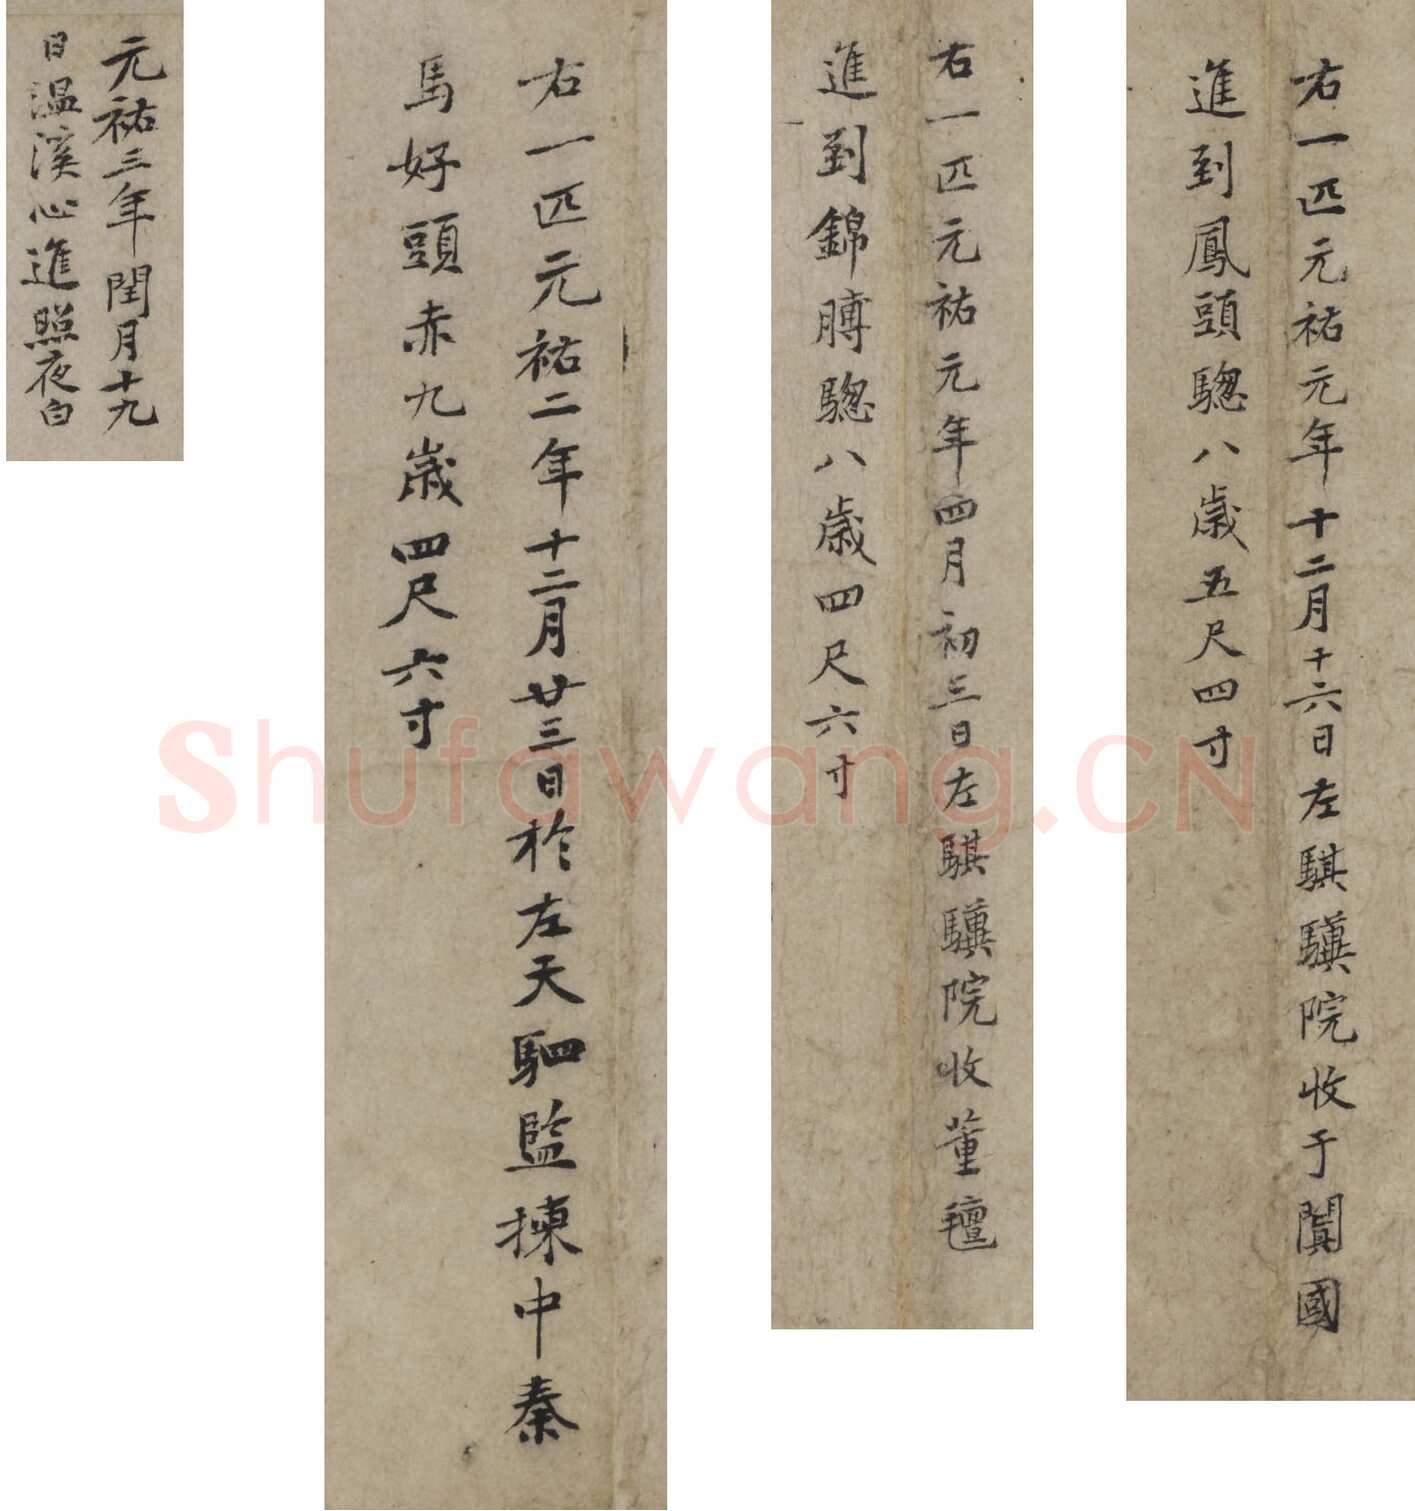 右一匹元祐元年十二月十六日左騏驥院收于闐國
進到鳳頭驄八歲五尺四寸
右一匹元祐元年四月初三日左騏驥院收董氊
進到錦膊驄八歲四尺六寸
右一匹元祐二年十二月廿三日於左天駟監揀中秦
馬好頭赤九歲四尺六寸
元祐三年閏月十九
日溫溪心進照夜白
Shufawang.CN